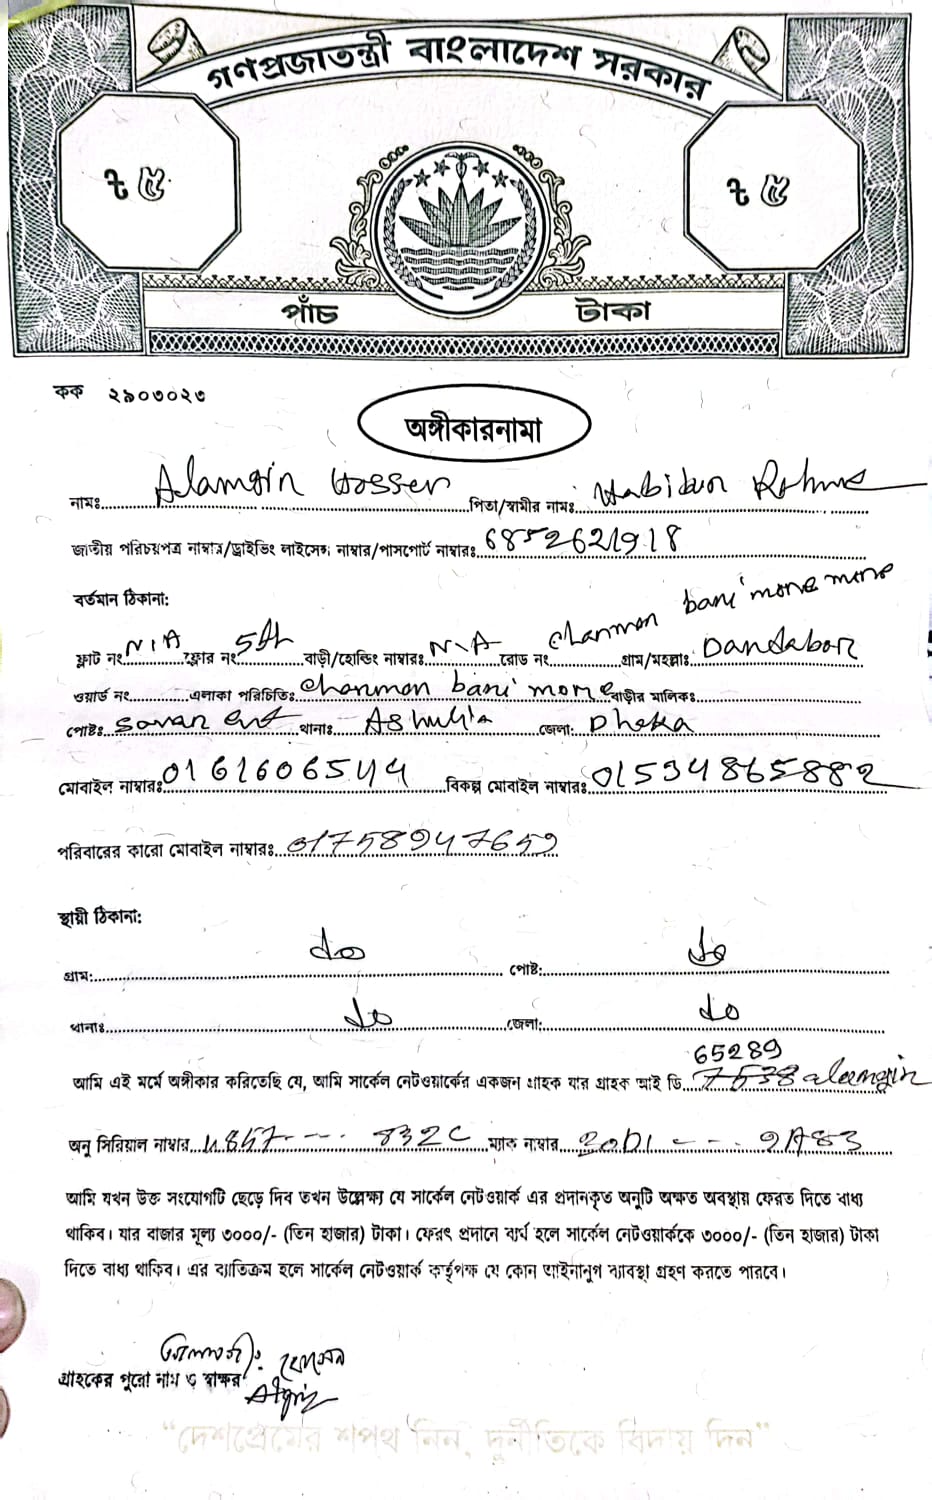 গণপ্রজাতন্ত্রী বাংলাদেশ সরকার
৳ ৫ ৳ ৫
পাঁচ টাকা
কক ২৯০৩০২৩
অঙ্গীকারনামা
নামঃ Alamgir Hossen পিতা/স্বামীর নামঃ Habibur Rahman
জাতীয় পরিচয়পত্র নাম্বার/ড্রাইভিং লাইসেন্স নাম্বার/পাসপোর্ট নাম্বারঃ 6852621918
বর্তমান ঠিকানা:
ফ্লাট নং N/A ফ্লোর নং 5th বাড়ী/হোল্ডিং নাম্বারঃ N/A রোড নং chanmon bani more more গ্রাম/মহল্লাঃ Dandabor
ওয়ার্ড নং এলাকা পরিচিতিঃ Chanmon bani more বাড়ীর মালিকঃ
পোষ্টঃ savar cnt থানাঃ Ashulia জেলা: Dhaka
মোবাইল নাম্বারঃ 0161606544 বিকল্প মোবাইল নাম্বারঃ 01534865882
পরিবারের কারো মোবাইল নাম্বারঃ 01758947659
স্থায়ী ঠিকানা:
গ্রাম: do পোষ্ট: do
থানাঃ do জেলা: do
65289
আমি এই মর্মে অঙ্গীকার করিতেছি যে, আমি সার্কেল নেটওয়ার্কের একজন গ্রাহক যার গ্রাহক আই ডি 7538 alamgir
অনু সিরিয়াল নাম্বার 4857---- 832C ম্যাক নাম্বার 20D1 --- 9A83
আমি যখন উক্ত সংযোগটি ছেড়ে দিব তখন উল্লেক্ষ্য যে সার্কেল নেটওয়ার্ক এর প্রদানকৃত অনুটি অক্ষত অবস্থায় ফেরত দিতে বাধ্য
থাকিব। যার বাজার মূল্য ৩০০০/- (তিন হাজার) টাকা। ফেরৎ প্রদানে ব্যর্থ হলে সার্কেল নেটওয়ার্ককে ৩০০০/- (তিন হাজার) টাকা
দিতে বাধ্য থাকিব। এর ব্যতিক্রম হলে সার্কেল নেটওয়ার্ক কর্তৃপক্ষ যে কোন আইনানুগ ব্যাবস্থা গ্রহণ করতে পারবে।
আলমগীর হোসেন
গ্রাহকের পুরো নাম ও স্বাক্ষর
"দেশপ্রেমের শপথ নিন, দুর্নীতিকে বিদায় দিন"